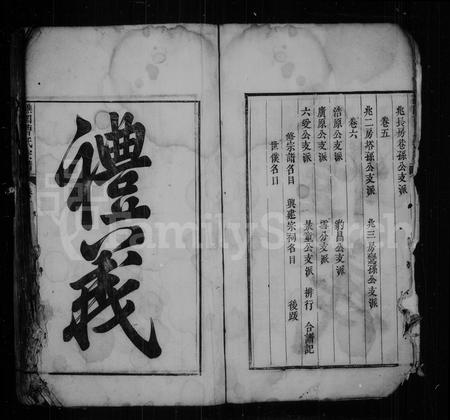 兆長房卷孫公支派
卷五
兆二房塔孫公支派 兆三房鸞孫公支派
卷六
浩原公支派 豹昌公支派
廣原公支派 雲分支派
六愛公支派 景董公支派 排行 合譜記
修宗譜名目 興建宗祠名目 後跋
世僕名目
禮義
FamilySearch